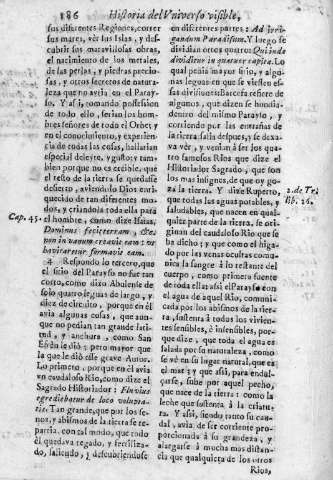 186 Historia del Vniverso visible,
sus diferentes Regiones, correr
sus mares, ver sus Islas, y des-
cubrir sus maravillosas obras,
el nacimiento de los metales,
de las perlas, y piedras precio-
sas, y otros secretos de natura-
leza que no avia en el Paray-
so. Y assi, tomando possession
de todo ello, serian los hom-
bres señores de todo el Orbe; y
en el conocimiento, y experien-
cia de todas las cosas, hallarian
especial deleyte, y gusto; y tam-
bien porque no es creible, que
el resto de la tierra se quedasse
desierto, aviendolo Dios enri-
quecido de tan diferentes mo-
dos, y criandola toda ella para
el hombre, como dize Isaias,
Cap. 45.
Dominus fecit terram, &
non in vanum creavit eam: vt
habitaretur formavit eam.
4 Respondo lo tercero, que
el sitio del Parayso no fue tan
corto, como dize Abulense de
solo quatro leguas de largo, y
diez de circuito, porque en èl
avia algunas cosas, que aun-
que no pedian tan grande lati-
tud, y anchura, como San
Efren le diò; pero mayor que
la que le diò esse grave Autor.
Lo primero, porque en èl avia
vn caudaloso Rio, como dize el
Sagrado Historiador: Fluvius
egrediebatur de loco volupta-
tis. Tan grande, que por los se-
nos, y abismos de la tierra se re-
partia con tal modo, que todo
èl quedava regado, y fertiliza-
do, saliendo, y descubriendose
en diferentes partes: Ad irri-
gandum Paradisum. Y luego se
dividia en otros quatro: Qui inde
dividitur in quatuor capita. Lo
qual pedia mayor sitio, y algu-
nas leguas en que se viessen es-
sas divisiones. Barcefa refiere de
algunos, que dizen se hundia
dentro del mismo Parayso, y
corriendo por las entrañas de
la tierra, salia despues, y se dexa-
va ver, y venian à ser los qua-
tro famosos Rios que dize el
Historiador Sagrado, que son
los mas insignes, de que oy go-
za la tierra. Y dize Ruperto,
2. de Tr.
lib. 26.
que todas las aguas potables, y
saludables, que nacen en qual-
quier parte de la tierra, se ori-
ginan del caudaloso Rio que se
ha dicho; y que como el higa-
do por las venas ocultas comu-
nica la sangre à lo restante del
cuerpo, como primera fuente
de toda ella: assi el Parayso con
el agua de aquel Rio, comuni-
cada por los abismos de la tier-
ra, sustenta à todos los vivien-
tes sensibles, è insensibles, por-
que dize, que toda el agua es
salada por su naturaleza, como
se vè en su lugar natural, que es
el mar; y que assi, para endul-
çarse, sube por aquel pecho,
que nace de la tierra: como la
leche que sustenta à la criatu-
ra. Y assi, siendo tanto su cau-
dal, avia de ser corriente pro-
porcionada à su grandeza, y
alargarse à mucha mas distan-
cia que qualquiera de los otros
Rios,